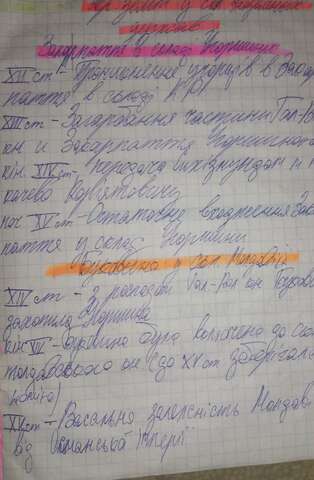 Закарпаття в складі Угорщини
XII ст - Проникнення угорців в Закар
паття в складі КР
XIII ст - Загарбання частини Гал-
кн и Закарпаття Угорщиною
кін. XIV ст - передача
качево Корятовичу
поч XV ст - Остаточне входження Зак
паття у склад Угорщини
Буковина у скл. Молдавії
XIV ст - з розпадом Гал-Вол кн Буков
захопила Угорщина
кін XIV - Буковина була включена до ск
молдавського кн (до XV ст зберігала
XV ст - Васальна залежність Молдав
від Османської Імперії